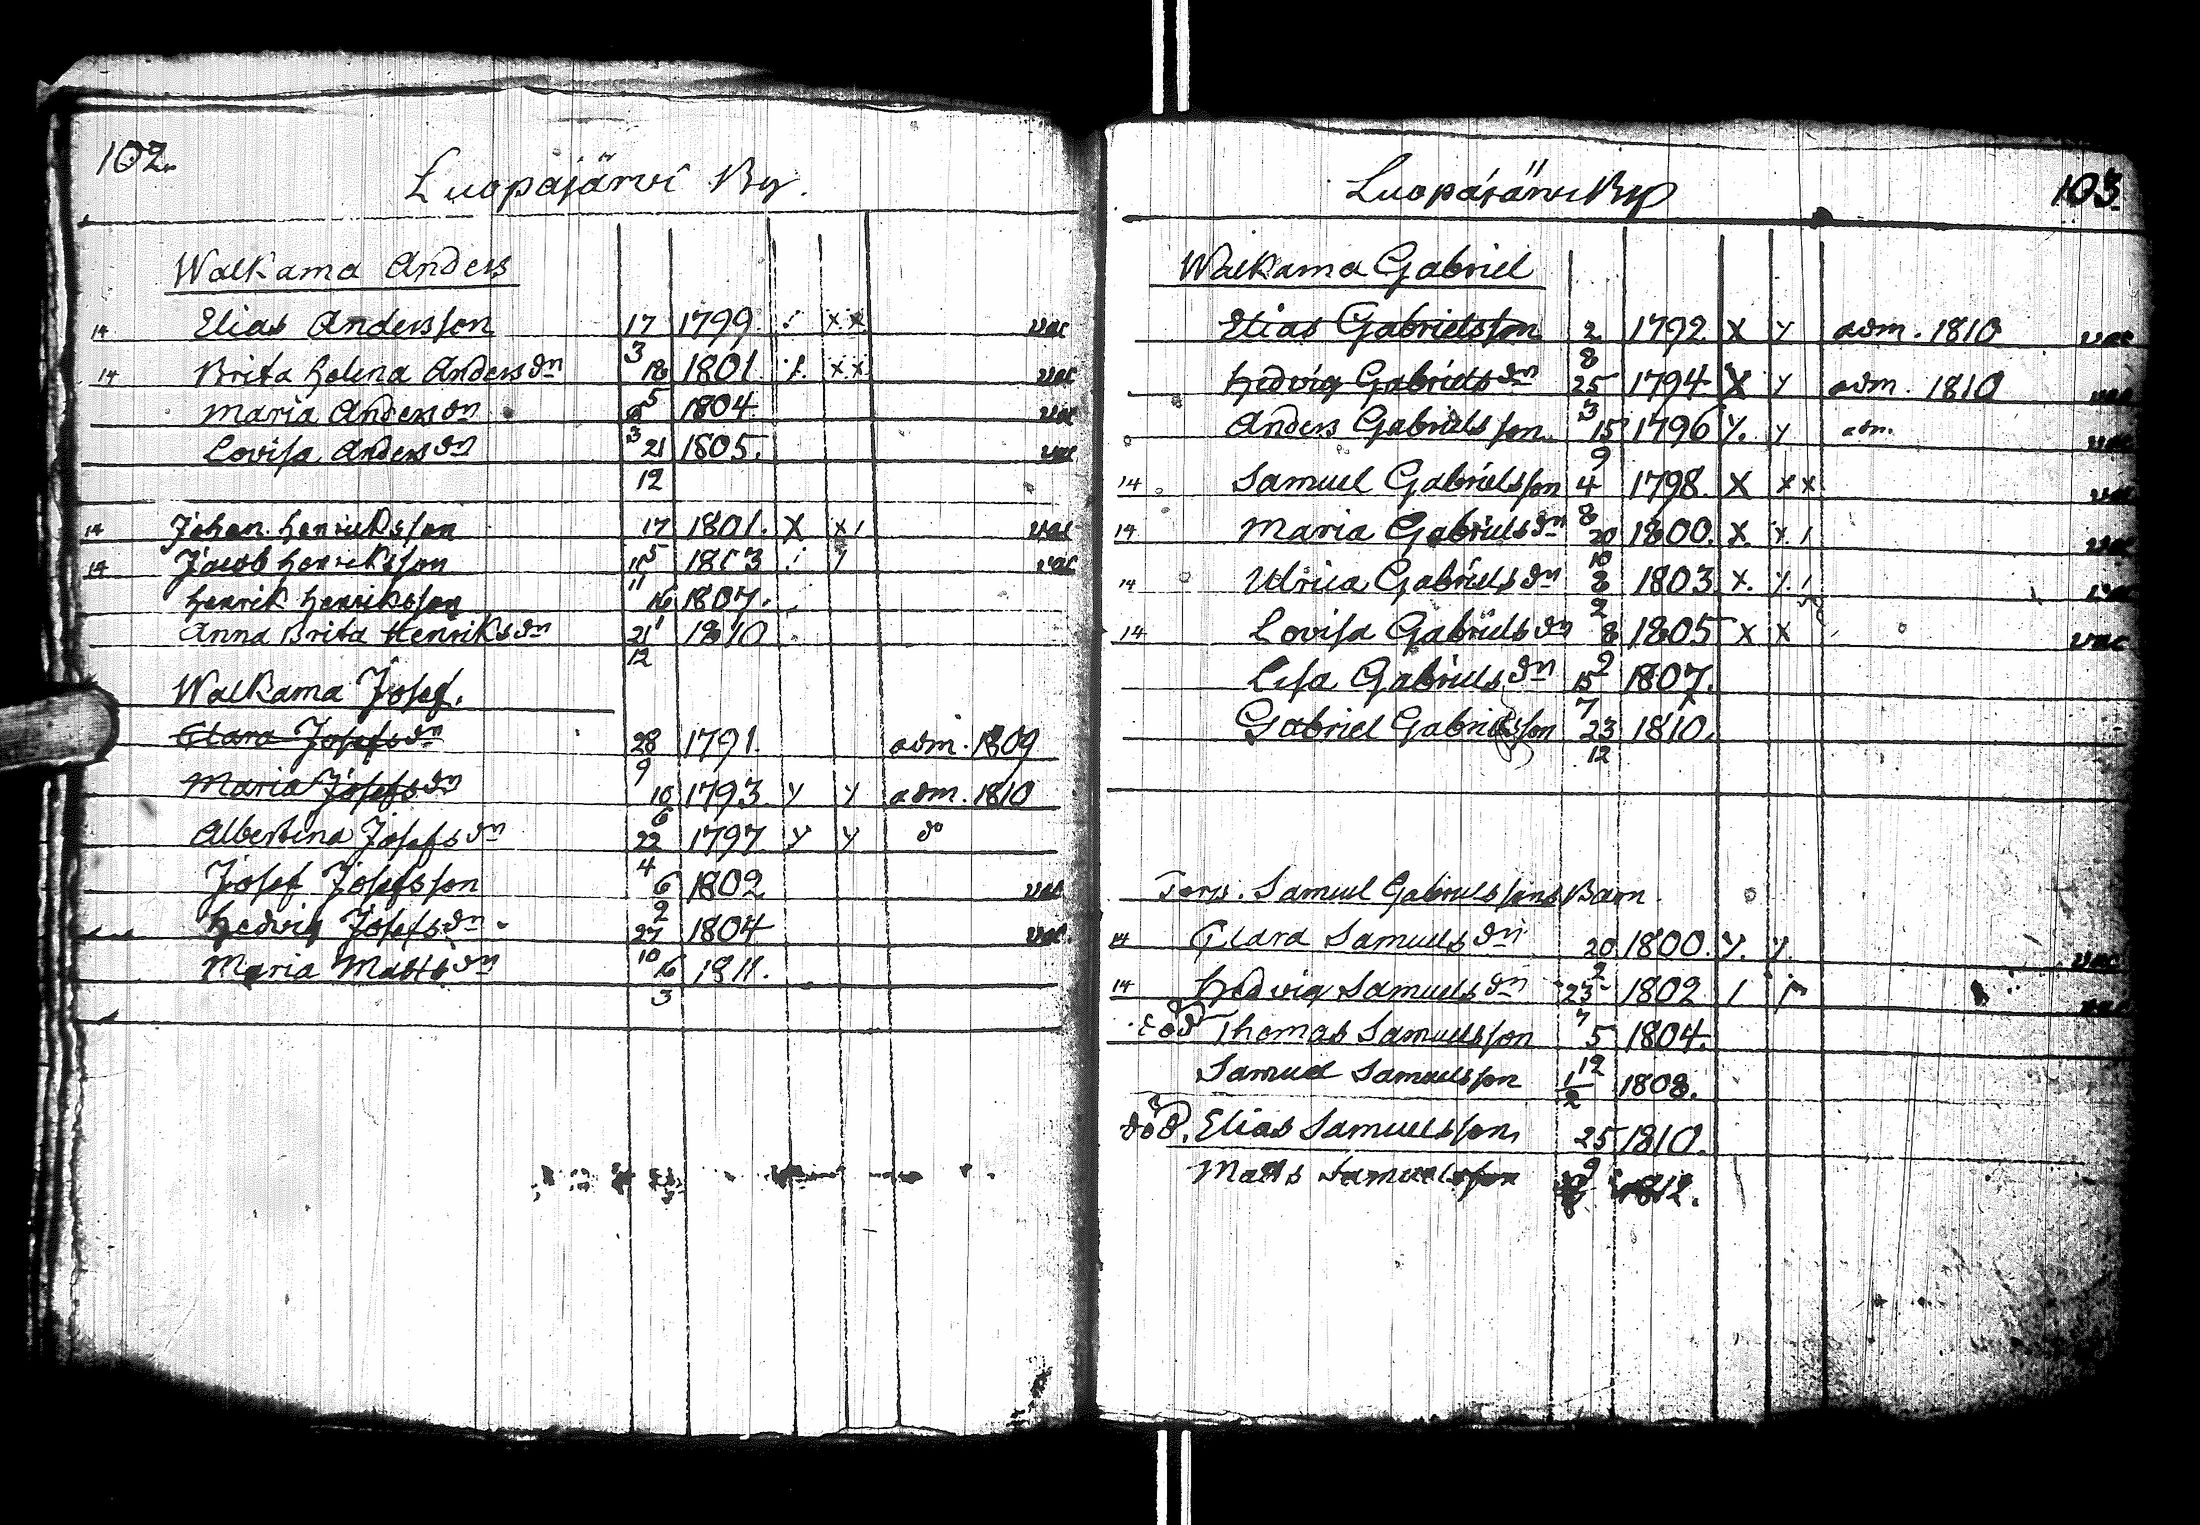 102.
Luopajärvi By.
Walkama Anders
14 Elias Andersson 17 1799. xx vac
3
14 Brita Helena Andersdn 18 1801. xx vac
5
Maria Andersdn 1804 vac
3
Lovisa Andersdn 21 1805. vac
12
14 Johan Henriksson 17 1801. X x1 vac
5
14 Jacob Henriksson 1803 vac
11
Henrik Henriksson 16 1807.
1
Anna Brita Henriksdn 21 1810
12
Walkama Josef.
Clara Josefsdn 28 1791. adm. 1809
9
Maria Josefsdn 10 1793. y y adm. 1810
6
Albertina Josefsdn 22 1797 y y do
4
Josef Josefsson 6 1802 vac
2
Hedvig Josefsdn 27 1804 vac.
10
Maria Mattsdn 16 1811.
3
Luopajärvi By 103.
Walkama Gabriel
Elias Gabrielsson 2 1792. X y adm. 1810 vac
8
Hedvig Gabrielsdn 25 1794 X y adm. 1810 vac
3
Anders Gabrielsson 15 1796 y. y adm. vac
9
14 Samuel Gabrielsson 4 1798. X xx vac
8
14 Maria Gabrielsdn 20 1800. X. x 1 vac
10
14 Ulrica Gabrielsdn 8 1803. x. y. 1 vac
2
14 Lovisa Gabrielsdn 8 1805 x x vac
9
Lisa Gabrielsdn 15 1807.
7
Gabriel Gabrielsson 23 1810.
12
Torp. Samuel Gabrielssons Barn.
14 Clara Samuelsdn 20 1800. y. y. vac
2
14 Hedvig Samuelsdn 23 1802 1 vac
7
död Thomas Samuelsson 5 1804.
12
Samuel Samuelsson 1/2 1808.
död. Elias Samuelsson 25 1810.
9
Matts Samuelsson 1812.